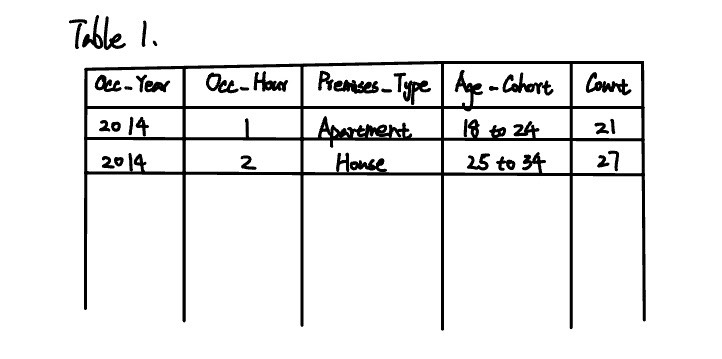 Table 1.
Occ-Year Occ-Hour Premises_Type Age-Cohort Count
2014 1 Apartment 18 to 24 21
2014 2 House 25 to 34 27